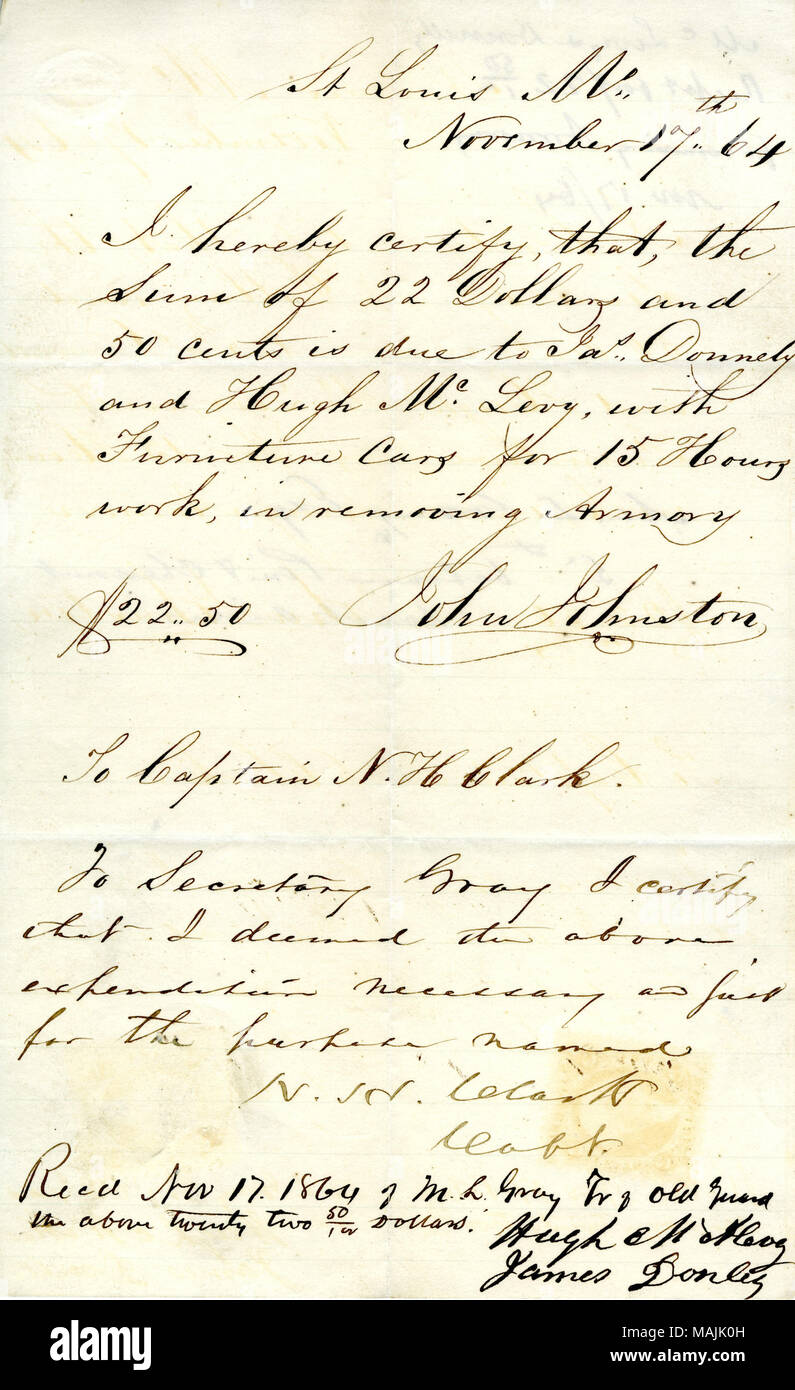 St Louis Mo.
November 17th 64
I hereby certify, that, the
Sum of 22 Dollars and
50 cents is due to Jas. Donnely
and Hugh Mc. Levy, with
Furniture Cars for 15 Hours
work, in removing Armory
$22.. 50 John Johnston
To Captain N. H Clark.
To Secretary Gray I certify
that I deemed the above
expenditure necessary and just
for the purpose named
N. H. Clark
Capt.
Recd Nov 17. 1864 of M. L. Gray Tr of Old Guard
the above twenty two 50/100 Dollars.
Hugh McAlevy
James Donley
alamy
Image ID: MAJK0H
www.alamy.com